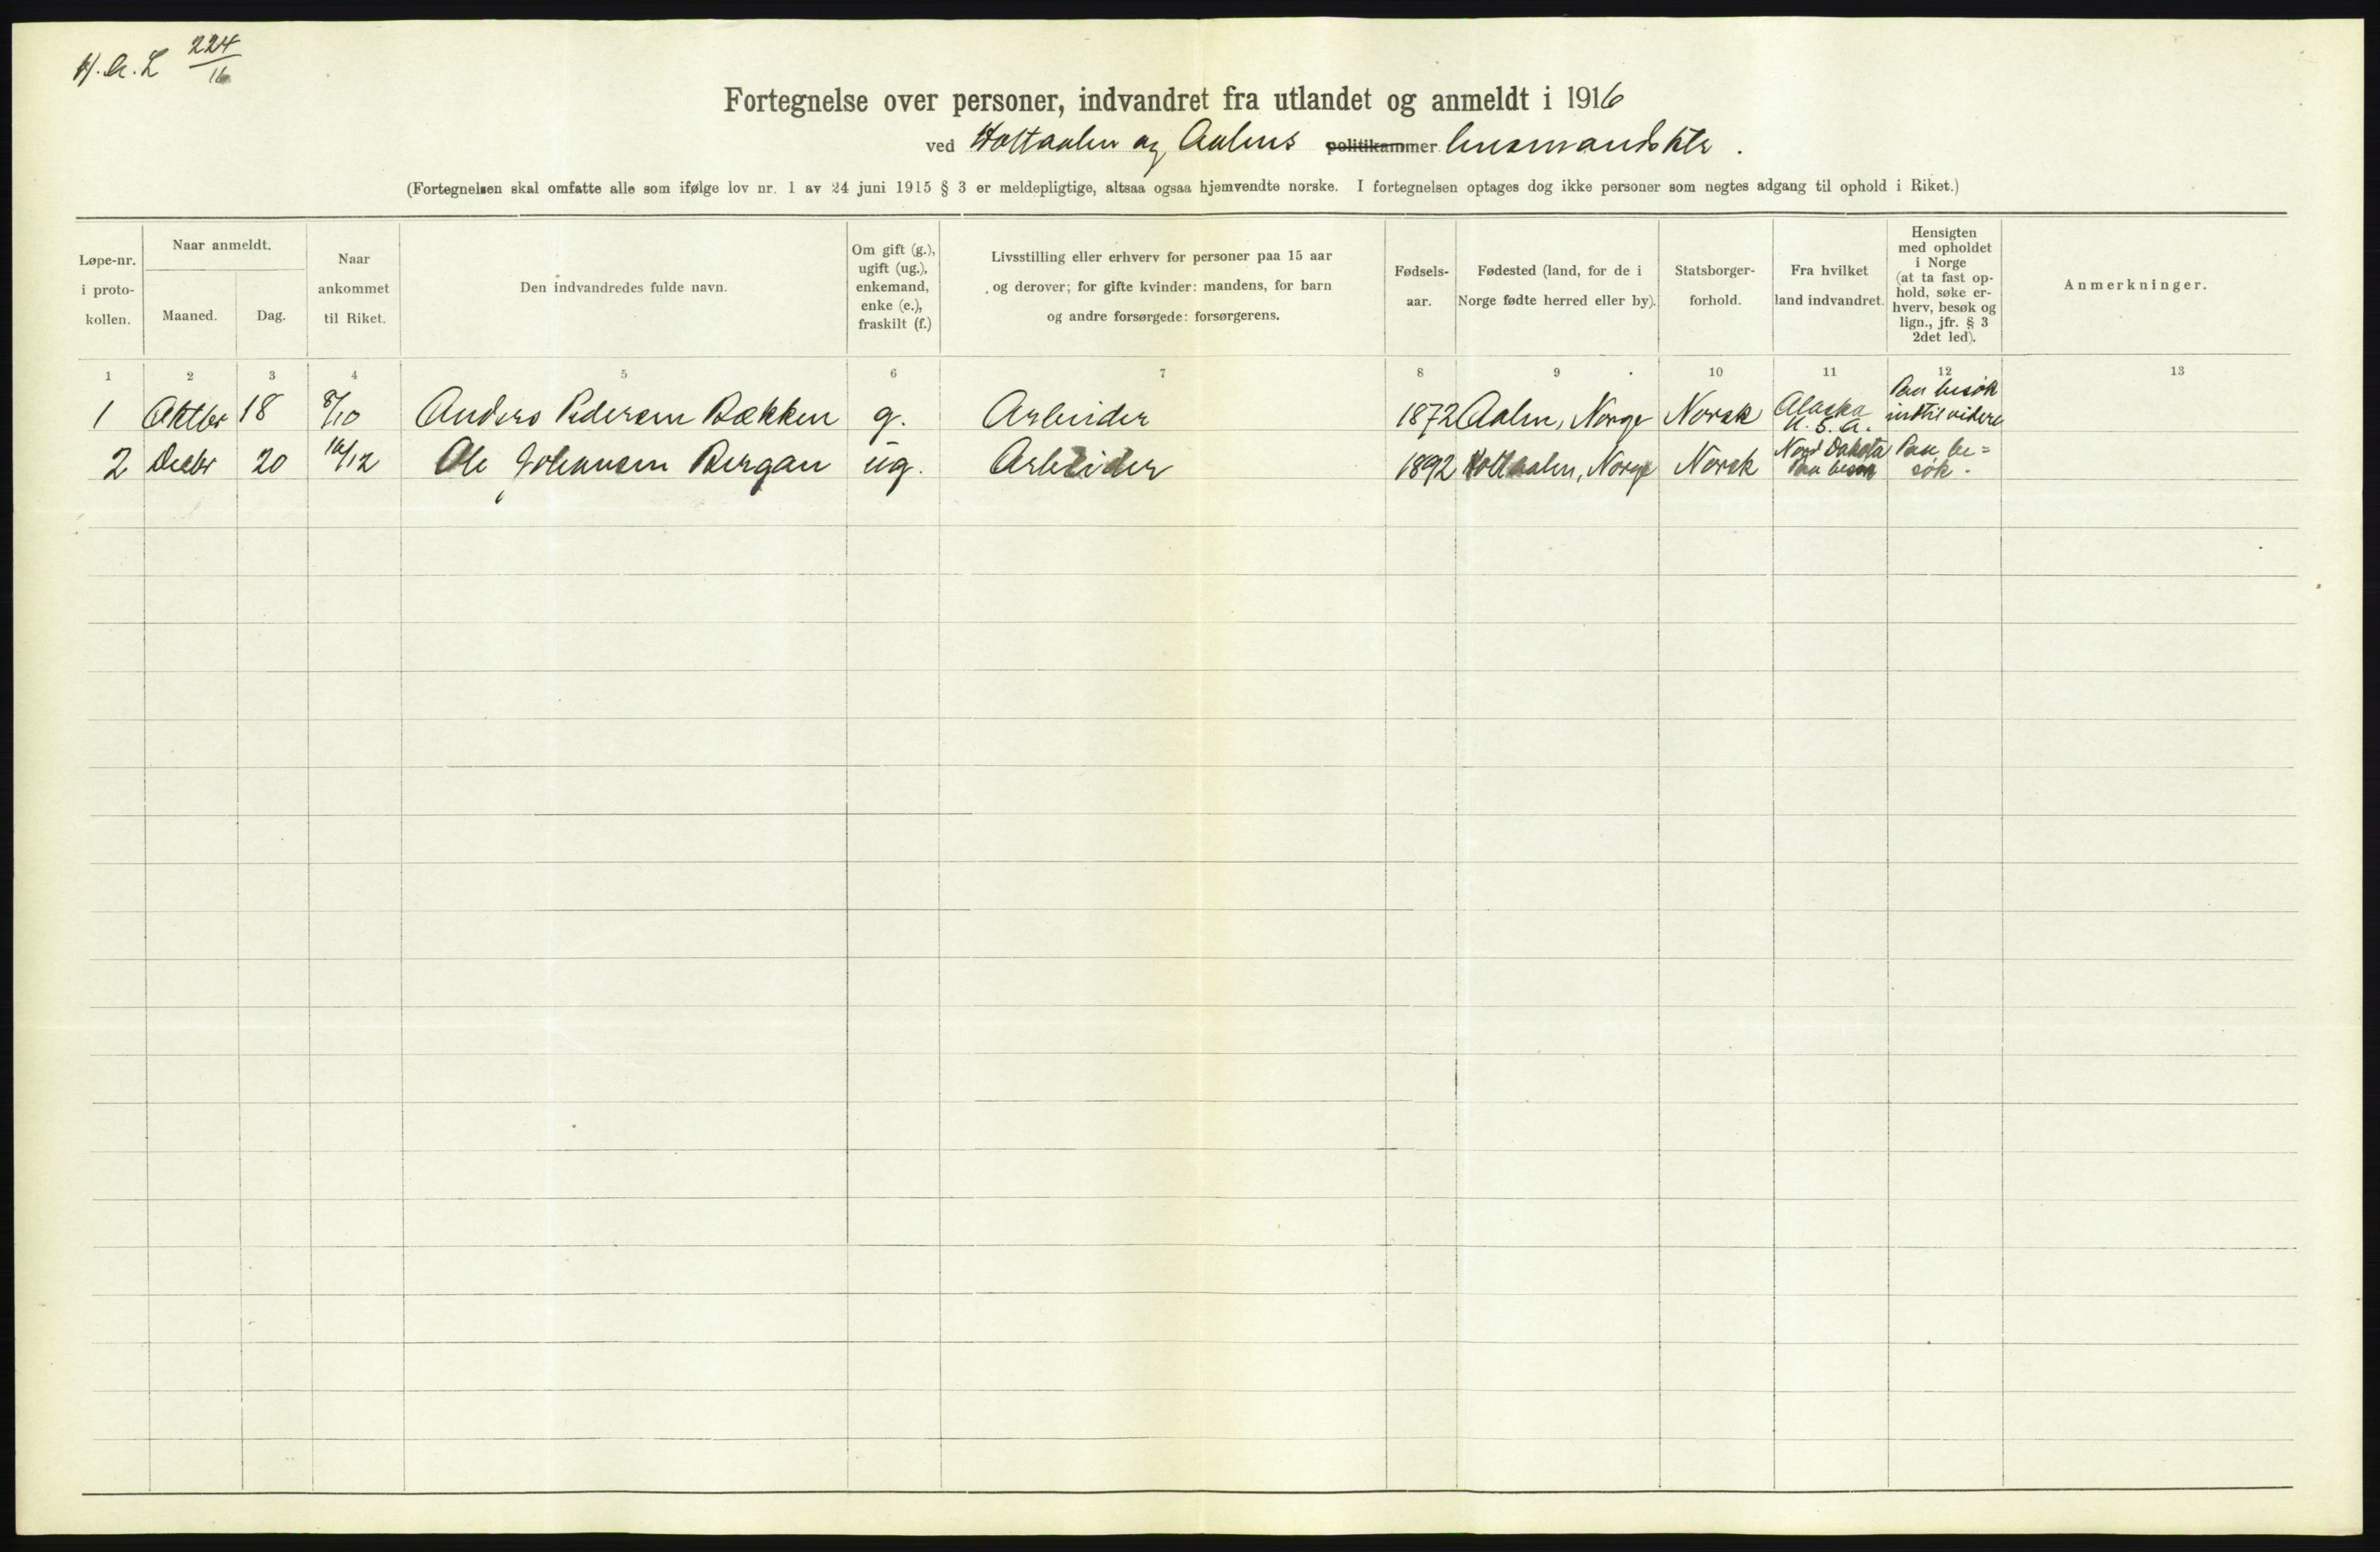 H.A.L 224/16
Fortegnelse over personer, indvandret fra utlandet og anmeldt i 1916
ved Holtaalen og Aalens politikammer lensmandsktr .
(Fortegnelsen skal omfatte alle som ifølge lov nr. 1 av 24 juni 1915 § 3 er meldepligtige, altsaa ogsaa hjemvendte norske. I fortegnelsen optages dog ikke personer som negtes adgang til ophold i Riket.)
Løpe-nr.
i proto-
kollen.
Naar anmeldt.
Maaned.
Dag.
Naar
ankommet
til Riket.
Den indvandredes fulde navn.
Om gift (g.),
ugift (ug.),
enkemand,
enke (e.),
fraskilt (f.)
Livsstilling eller erhverv for personer paa 15 aar
og derover; for gifte kvinder: mandens, for barn
og andre forsørgede: forsørgerens.
Fødsels-
aar.
Fødested (land, for de i
Norge fødte herred eller by).
Statsborger-
forhold.
Fra hvilket
land indvandret.
Hensigten
med opholdet
i Norge
(at ta fast op-
hold, søke er-
hverv, besøk og
lign., jfr. § 3
2det led).
Anmerkninger.
1 2 3 4 5 6 7 8 9 10 11 12 13
1 Oktbr 18 8/10 Anders Pedersen Bækken g. Arbeider 1872 Aalen, Norge Norsk Alaska U.S.A. Paa besøk indtil videre
2 Decbr 20 16/12 Ole Johansen Bergan ug. Arbeider 1892 Holtaalen, Norge Norsk Nord Dakota Paa besøk Paa be=
søk.